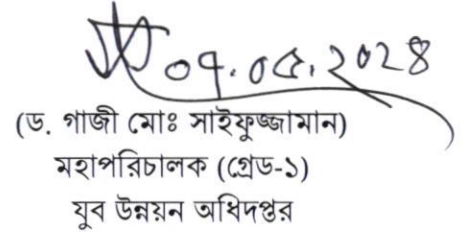 ০৭.০৫.২০২৪
(ড. গাজী মোঃ সাইফুজ্জামান)
মহাপরিচালক (গ্রেড-১)
যুব উন্নয়ন অধিদপ্তর